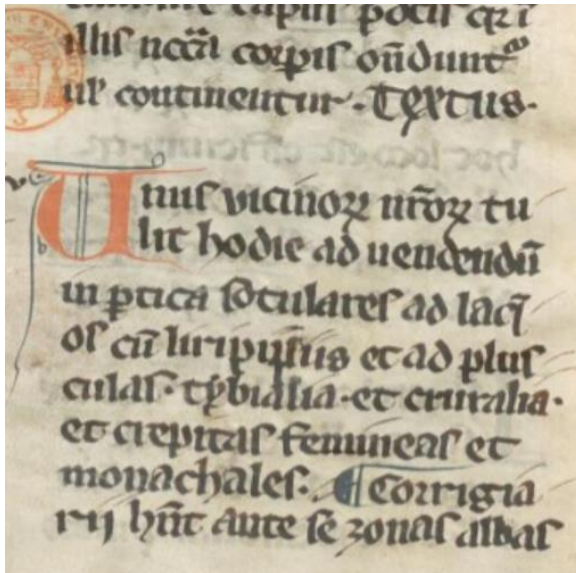 illis nccãl corꝑis oñdunt᷑
ul̓ continentur · Textus ·
Unus vicinoꝝ nr̃oꝝ tu
lit hodie ad uendendũ
in ꝑtica sotulares ad laq̃
os cũ liripipiis et ad plus
culas · tybialia · et cruralia ·
et crepitas femineas et
monachales · ¶ Corrigia
rij hñt ante se zonas albas